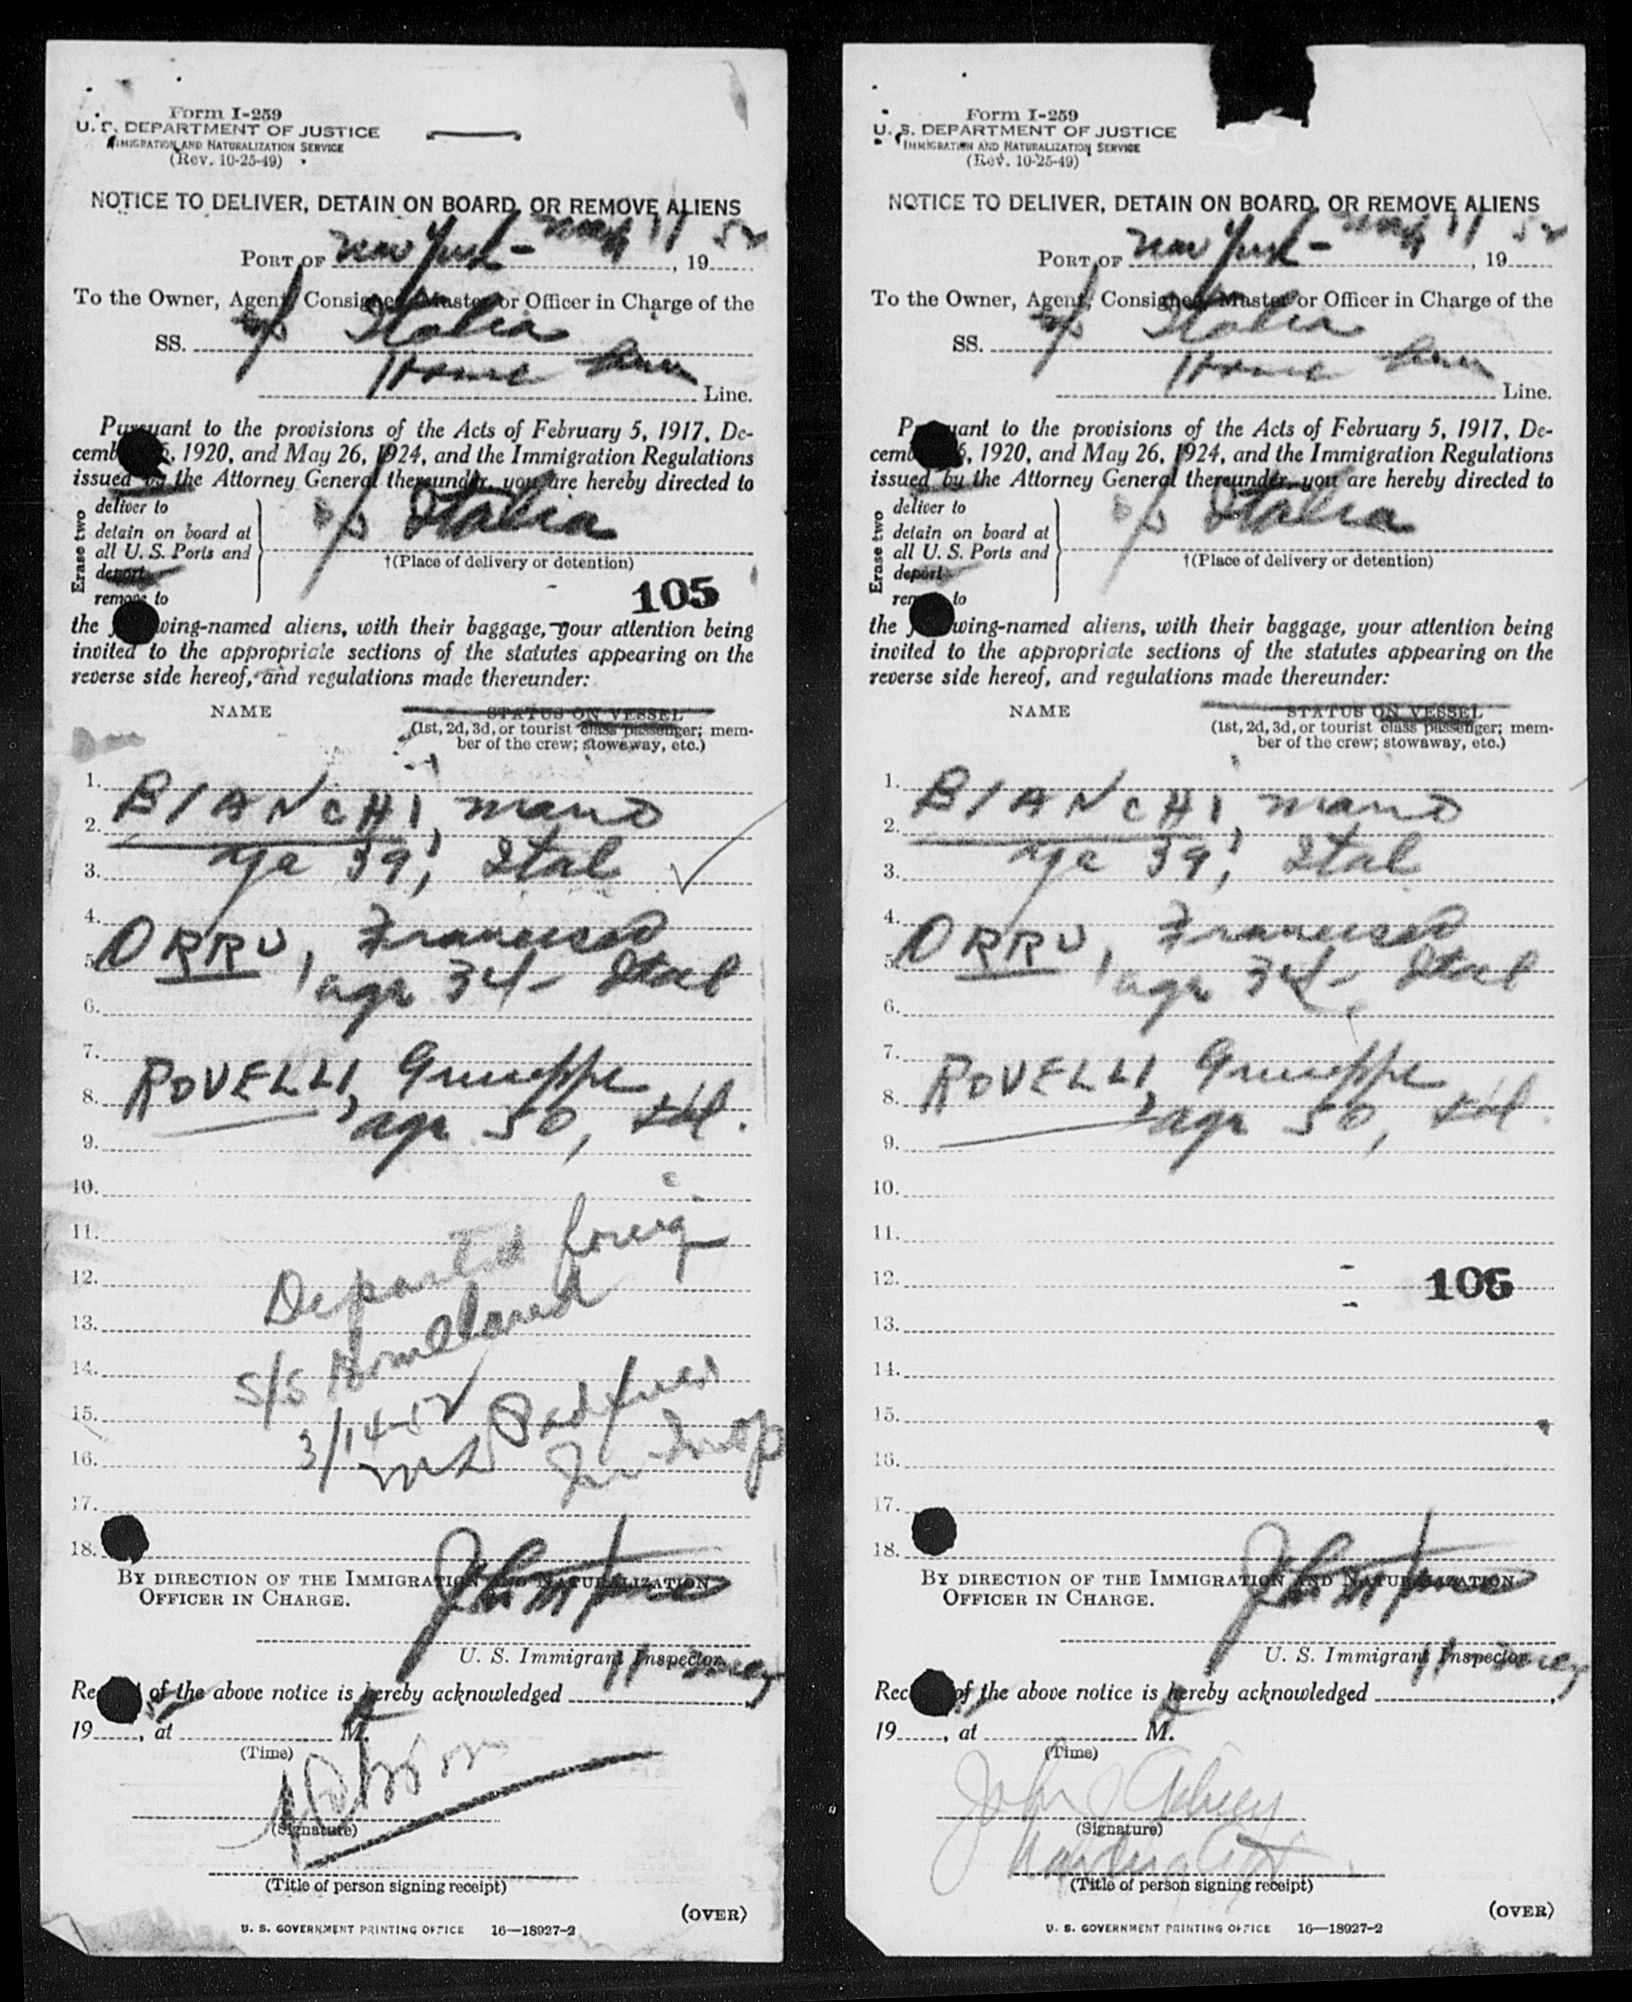 Form I-259
U. S. DEPARTMENT OF JUSTICE
IMMIGRATION AND NATURALIZATION SERVICE
(Rev. 10-25-49)
NOTICE TO DELIVER, DETAIN ON BOARD, OR REMOVE ALIENS
PORT OF New York - 11, 19 52
To the Owner, Agent, Consignee, Master or Officer in Charge of the
SS. s/s Italia
Home Line.
Pursuant to the provisions of the Acts of February 5, 1917, De-
cember, 1920, and May 26, 1924, and the Immigration Regulations
issued by the Attorney General thereunder, you are hereby directed to
Erase two
deliver to
detain on board at
all U. S. Ports and
deport
remove to
s/s Italia
†(Place of delivery or detention)
105
the following-named aliens, with their baggage, your attention being
invited to the appropriate sections of the statutes appearing on the
reverse side hereof, and regulations made thereunder:
NAME
STATUS ON VESSEL
(1st, 2d, 3d, or tourist class passenger; mem-
ber of the crew; stowaway, etc.)
1.
2. BIANCHI, Mario
3. age 39, Ital
4.
5. ORRU, Francesco
6. age 34 - Ital
7.
8. ROVELLI, Giuseppe
9. age 50, Ital.
10.
11.
12. Departed foreign
13.
14. S/S Homeland
15. 3/14-52
16.
17.
18.
BY DIRECTION OF THE IMMIGRATION AND NATURALIZATION
OFFICER IN CHARGE.
U. S. Immigrant Inspector.
Receipt of the above notice is hereby acknowledged 11,
19 52, at M.
(Time)
(Signature)
(Title of person signing receipt)
(OVER)
U. S. GOVERNMENT PRINTING OFFICE 16—18927-2
Form I-259
U. S. DEPARTMENT OF JUSTICE
IMMIGRATION AND NATURALIZATION SERVICE
(Rev. 10-25-49)
NOTICE TO DELIVER, DETAIN ON BOARD, OR REMOVE ALIENS
PORT OF New York - 11, 19 52
To the Owner, Agent, Consignee, Master or Officer in Charge of the
SS. s/s Italia
Home Line.
Pursuant to the provisions of the Acts of February 5, 1917, De-
cember, 1920, and May 26, 1924, and the Immigration Regulations
issued by the Attorney General thereunder, you are hereby directed to
Erase two
deliver to
detain on board at
all U. S. Ports and
deport
remove to
s/s Italia
†(Place of delivery or detention)
the following-named aliens, with their baggage, your attention being
invited to the appropriate sections of the statutes appearing on the
reverse side hereof, and regulations made thereunder:
NAME
STATUS ON VESSEL
(1st, 2d, 3d, or tourist class passenger; mem-
ber of the crew; stowaway, etc.)
1.
2. BIANCHI, Mario
3. age 39, Ital
4.
5. ORRU, Francesco
6. age 34 - Ital
7.
8. ROVELLI, Giuseppe
9. age 50, Ital.
10.
11.
12.
13.
14.
15.
16.
17.
18.
BY DIRECTION OF THE IMMIGRATION AND NATURALIZATION
OFFICER IN CHARGE.
U. S. Immigrant Inspector.
Receipt of the above notice is hereby acknowledged 11,
19 , at M.
(Time)
John
(Signature)
(Title of person signing receipt)
(OVER)
U. S. GOVERNMENT PRINTING OFFICE 16—18927-2